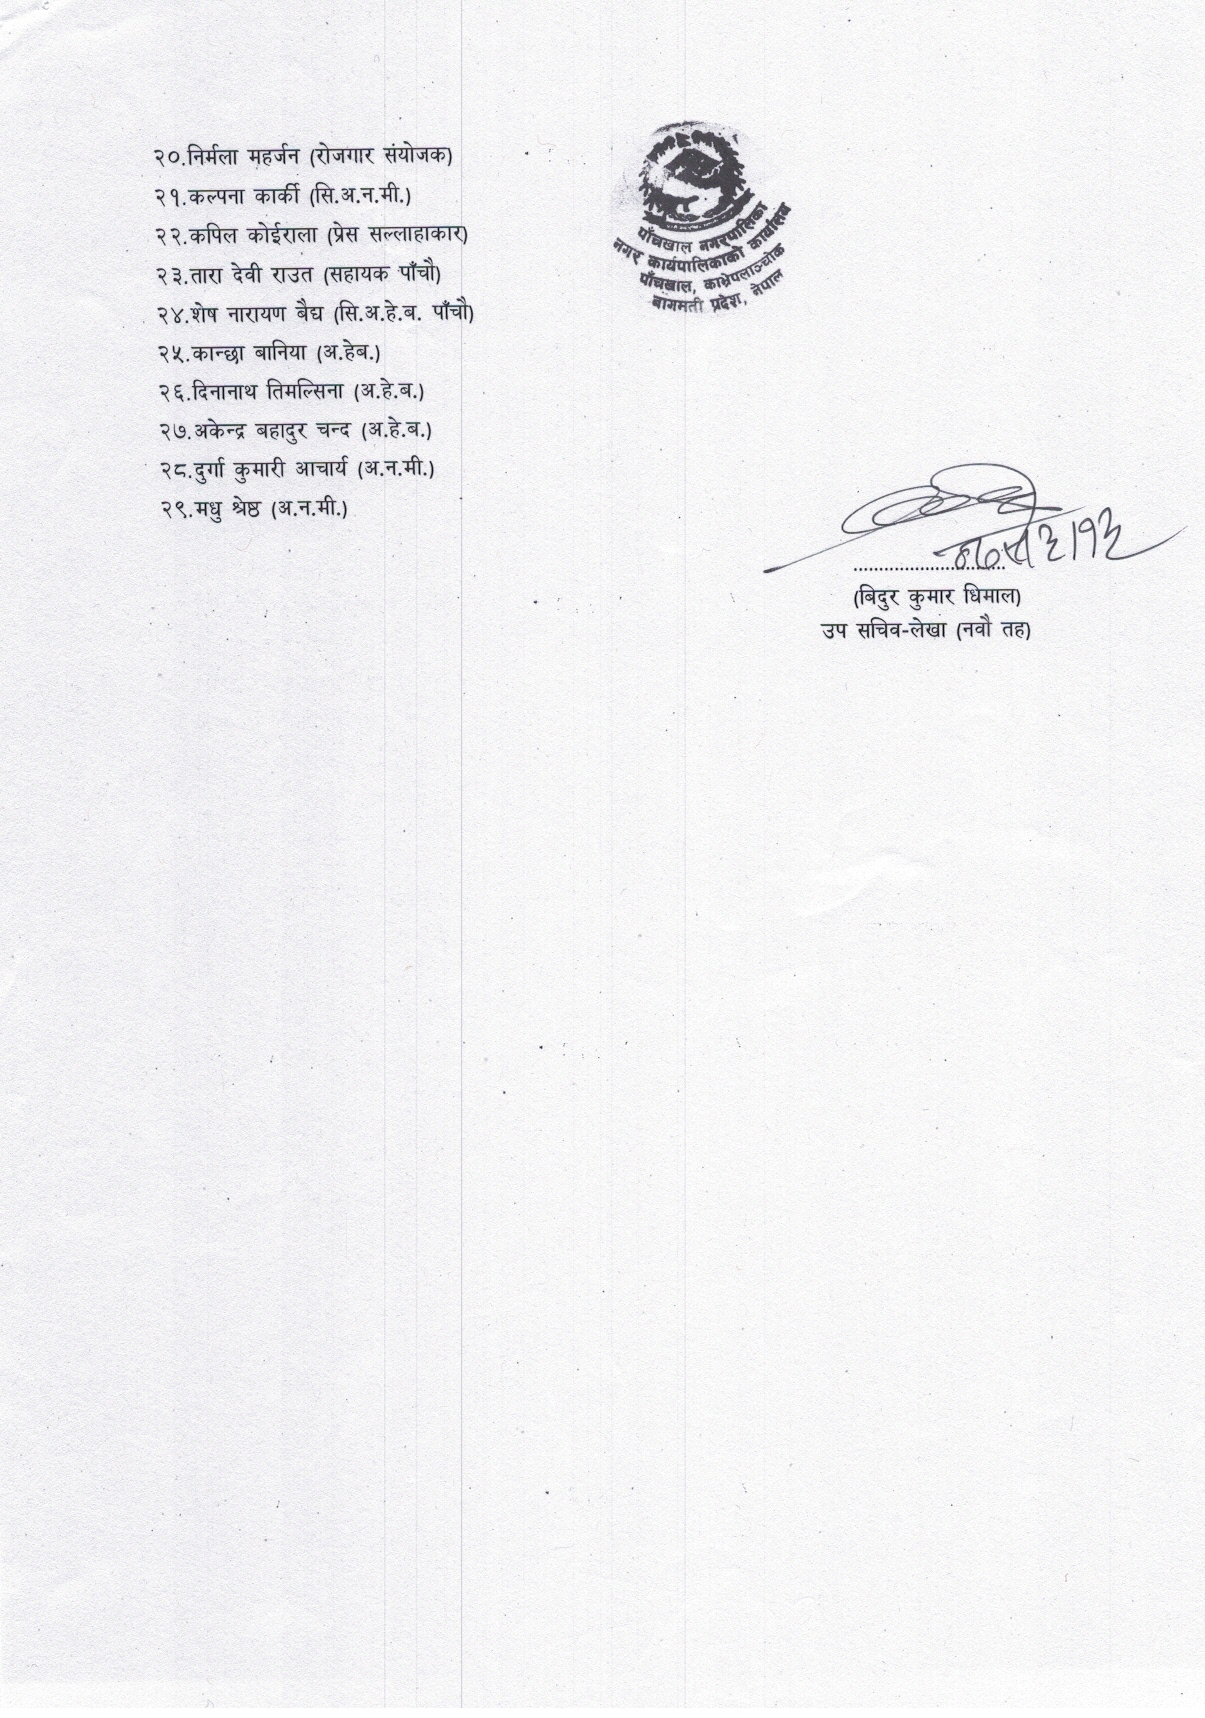 २०.निर्मला महर्जन (रोजगार संयोजक)
२१.कल्पना कार्की (सि.अ.न.मी.)
२२.कपिल कोईराला (प्रेस सल्लाहाकार)
२३.तारा देवी राउत (सहायक पाँचौ)
२४.शेष नारायण बैद्य (सि.अ.हे.ब. पाँचौ)
२५.कान्छा बानिया (अ.हेब.)
२६.दिनानाथ तिमल्सिना (अ.हे.ब.)
२७.अकेन्द्र बहादुर चन्द (अ.हे.ब.)
२८.दुर्गा कुमारी आचार्य (अ.न.मी.)
२९.मधु श्रेष्ठ (अ.न.मी.)
पाँचखाल नगरपालिका
नगर कार्यपालिकाको कार्यालय
पाँचखाल, काभ्रेपलाञ्चोक
बागमती प्रदेश, नेपाल
(बिदुर कुमार धिमाल)
उप सचिव-लेखा (नवौ तह)